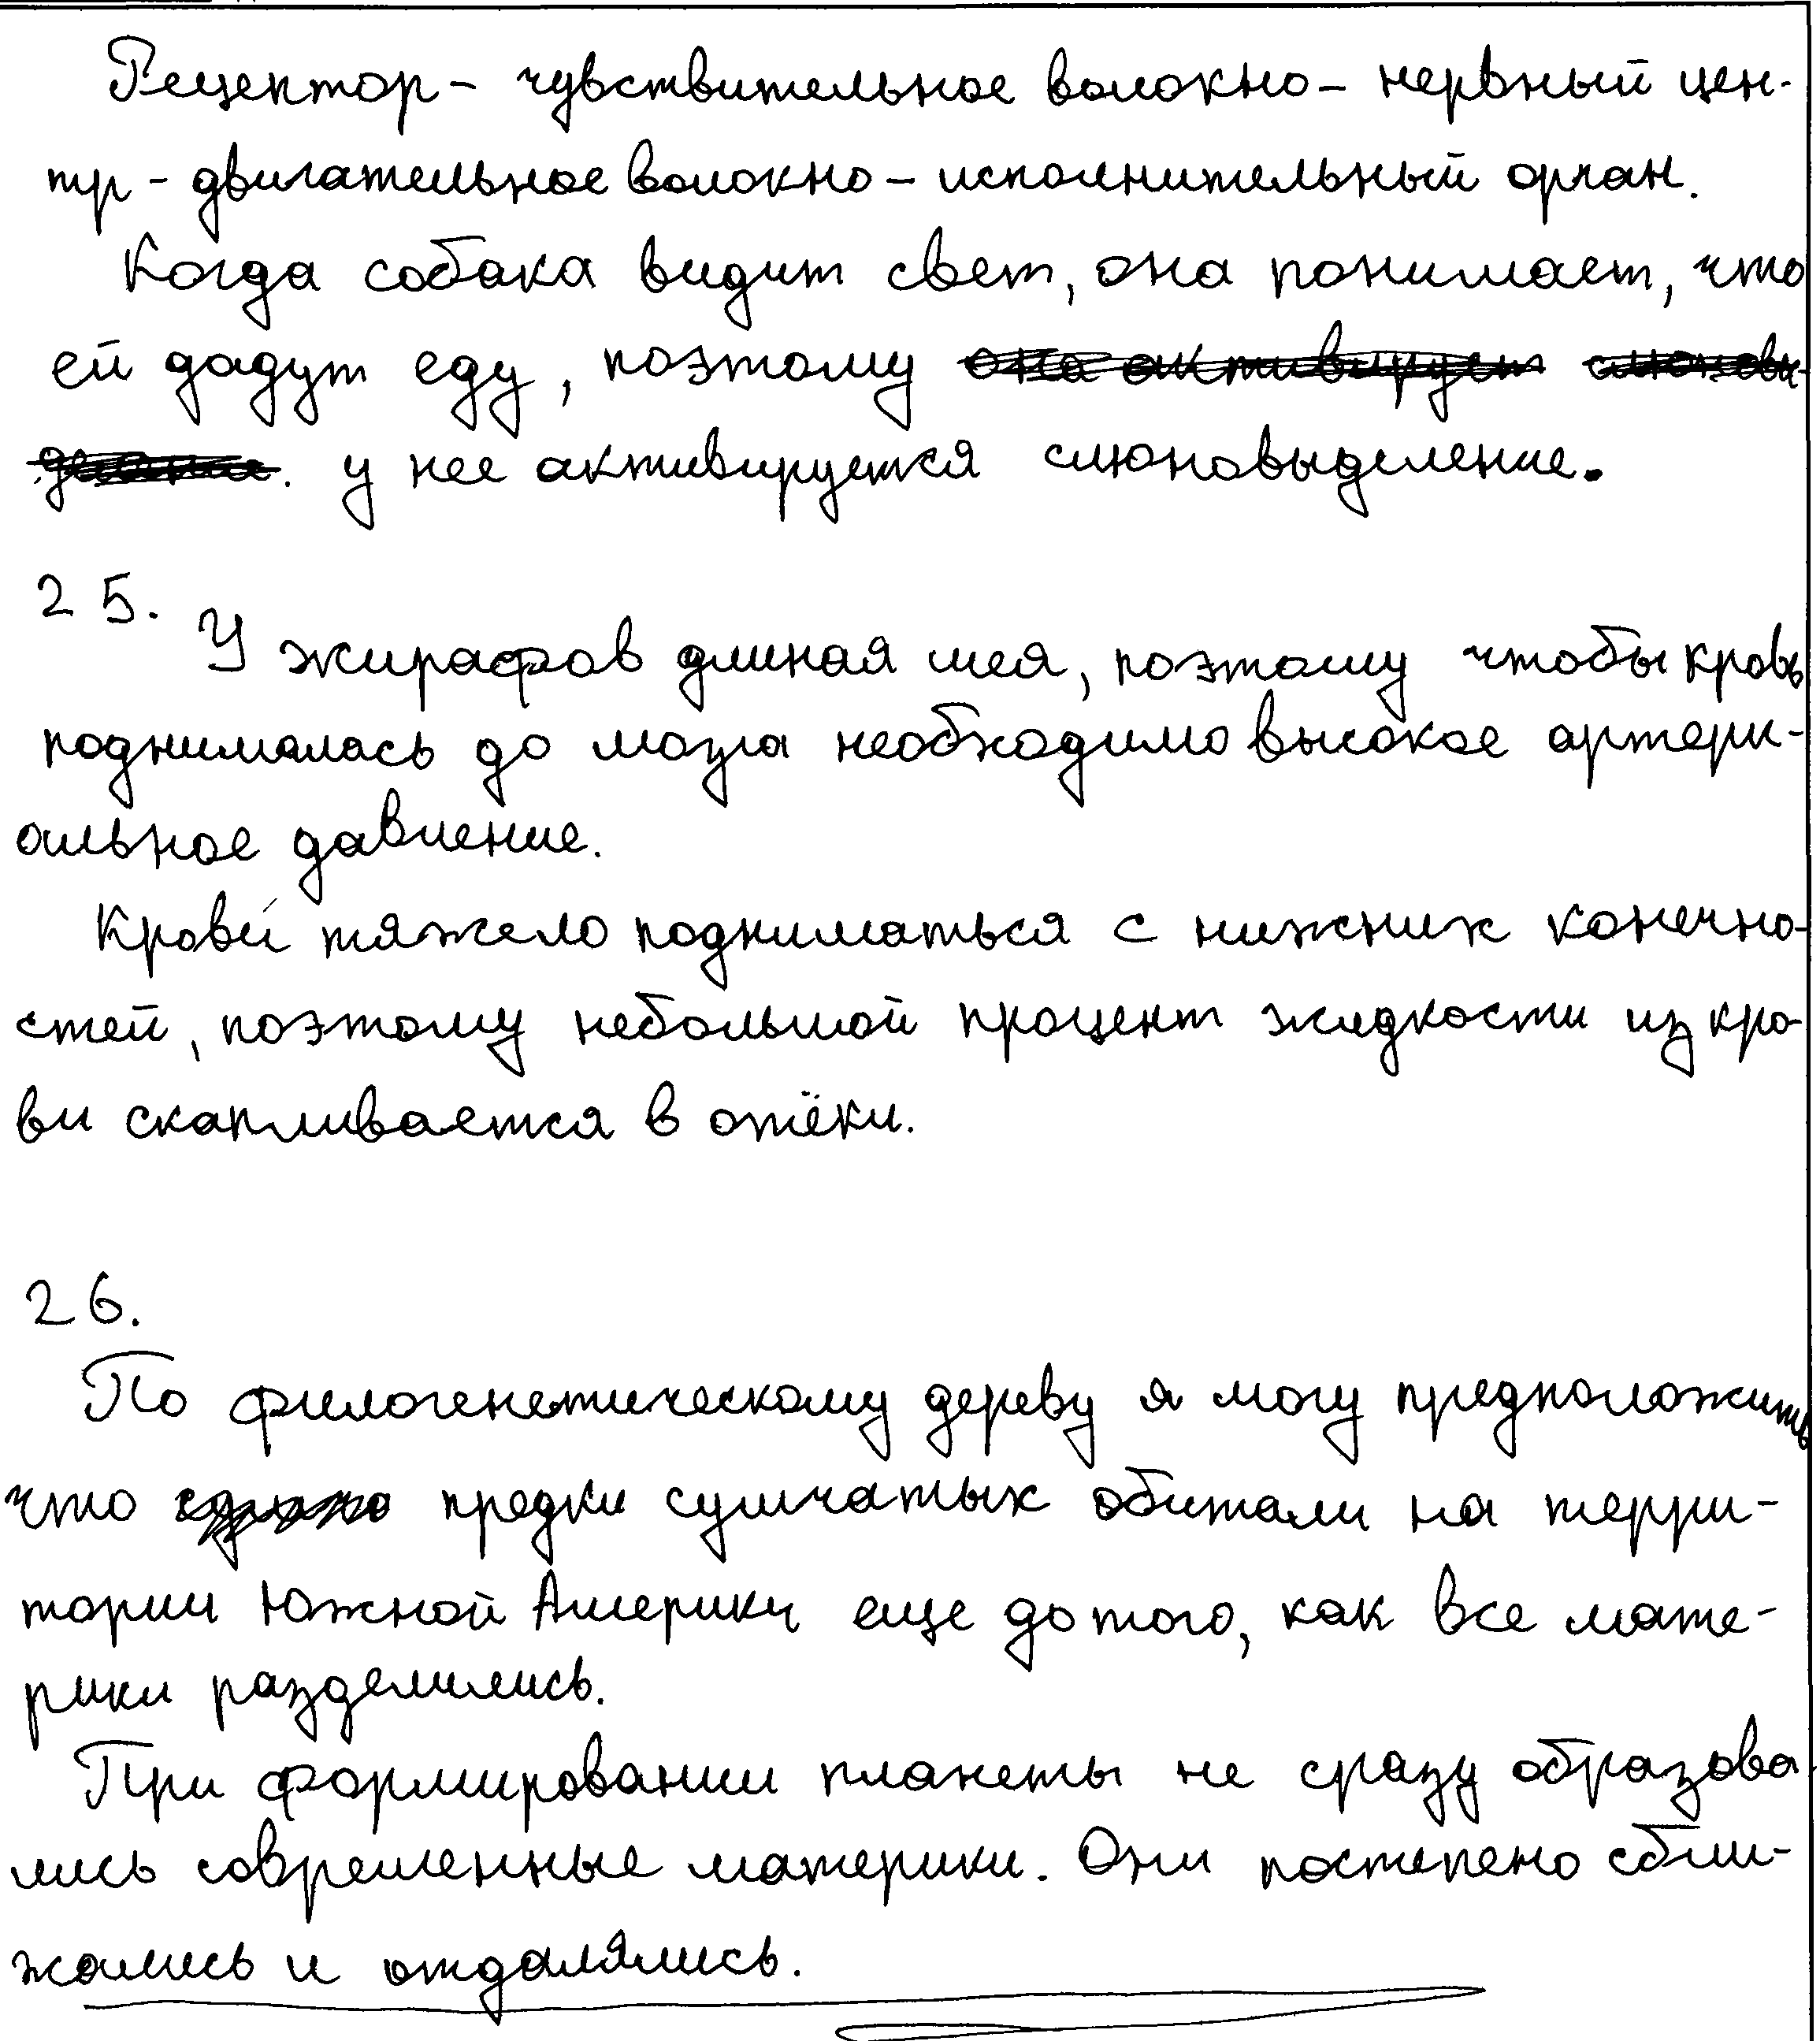 Рецептор - чувствительное волокно - нервный цен-
тр - двигательное волокно - исполнительный орган.
Когда собака видит свет, она понимает, что
ей дадут еду, поэтому она активирует слюновы-
деление. у нее активируется слюновыделение.
25.
У жирафов длиная шея, поэтому чтобы кровь
поднималась до мозга необходимо высокое артери-
альное давление.
Крови тяжело подниматься с нижних конечно-
стей, поэтому небольшой процент жидкости из кро-
ви скапливается в отёки.
26.
По филогенетическому дереву я могу предположить
что предки сумчатых обитали на терри-
тории Южной Америки еще до того, как все мате-
рики разделились.
При формировании планеты не сразу образова
лись современные материки. Они постепено сбли-
жались и отдалялись.